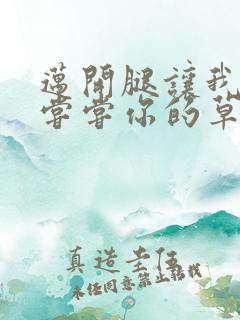 邁開腿讓我
嘗嘗你的草
真造圭伍
未经同意禁止转载